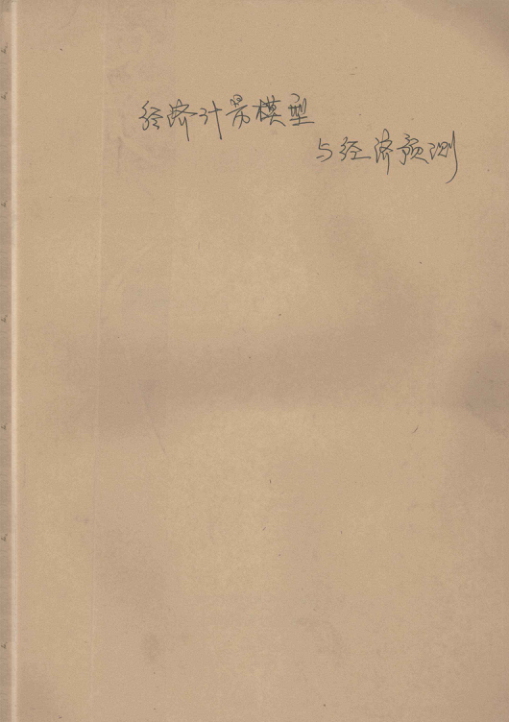 经济计量模型
与经济预测